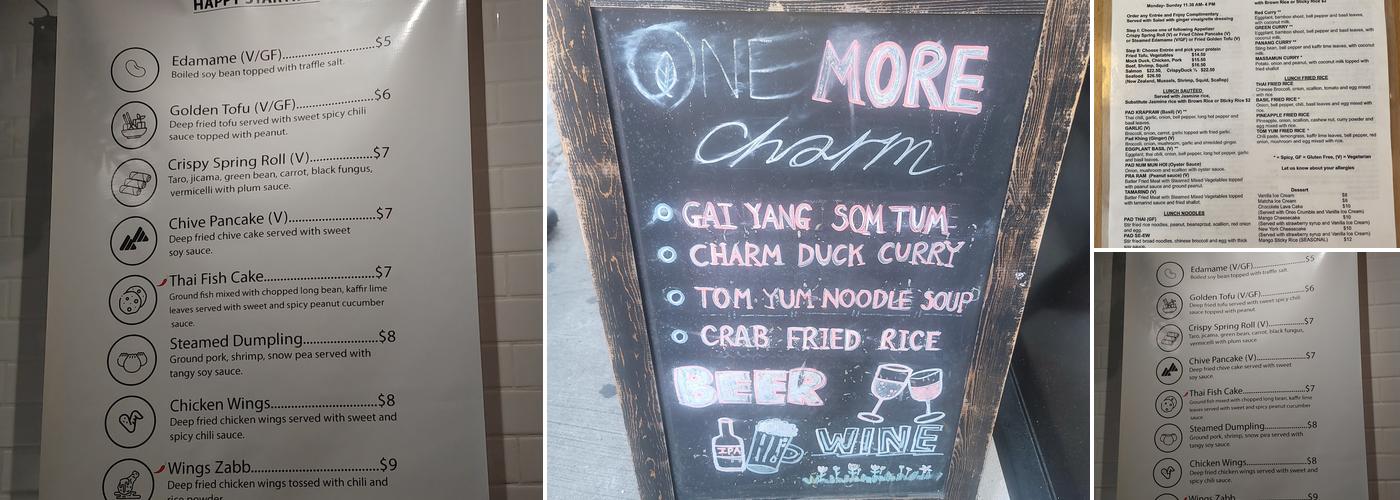 Edamame (V/GF)..........................$5
Boiled soy bean topped with traffle salt.
Golden Tofu (V/GF)......................$6
Deep fried tofu served with sweet spicy chili
sauce topped with peanut.
Crispy Spring Roll (V)...................$7
Taro, jicama, green bean, carrot, black fungus,
vermicelli with plum sauce.
Chive Pancake (V)........................$7
Deep fried chive cake served with sweet
soy sauce.
Thai Fish Cake............................$7
Ground fish mixed with chopped long bean, kaffir lime
leaves served with sweet and spicy peanut cucumber
sauce.
Steamed Dumpling...................$8
Ground pork, shrimp, snow pea served with
tangy soy sauce.
Chicken Wings..........................$8
Deep fried chicken wings served with sweet and
spicy chili sauce.
Wings Zabb...............................$9
Deep fried chicken wings tossed with chili and
rice powder
ONE MORE
charm
GAI YANG SOM TUM
CHARM DUCK CURRY
TOM YUM NOODLE SOUP
CRAB FRIED RICE
BEER
IPA
WINE
Monday- Sunday 11.30 AM- 4 PM
Order any Entrée and Enjoy Complimentary
Served with Salad with ginger vinaigrette dressing
Step I: Choose one of following Appetizer
Crispy Spring Roll (V) or Fried Chive Pancake (V)
or Steamed Edamame (V/GF) or Fried Golden Tofu (V)
Step II: Choose Entrée and pick your protein
Fried Tofu, Vegetables $14.50
Mock Duck, Chicken, Pork $15.50
Beef, Shrimp, Squid $16.50
Salmon $22.50, CrispyDuck ½ $22.50
Seafood $26.50
(New Zealand, Mussels, Shrimp, Squid, Scallop)
LUNCH SAUTÉED
Served with Jasmine rice,
Substitute Jasmine rice with Brown Rice or Sticky Rice $2
PAD KRAPRAW (Basil) (V) **
Thai chili, garlic, onion, bell pepper, long hot pepper and
basil leaves.
GARLIC (V)
Broccoli, onion, carrot, garlic topped with fried garlic.
Pad Khing (Ginger) (V)
Broccoli, onion, mushroom, garlic and shredded ginger.
EGGPLANT BASIL (V) **
Eggplant, thai chili, onion, bell pepper, long hot pepper, garlic
and basil leaves.
PAD NUM MUN HOI (Oyster Sauce)
Onion, mushroom and scallion with oyster sauce.
PRA RAM (Peanut sauce) (V)
Batter Fried Meat with Steamed Mixed Vegetables topped
with peanut sauce and ground peanut.
TAMARIND (V)
Batter Fried Meat with Steamed Mixed Vegetables topped
with tamarind sauce and fried shallot.
LUNCH NOODLES
PAD THAI (GF)
Stir fried rice noodles, peanut, beansprout, scallion, red onion
and egg.
PAD SE-EW
Stir fried broad noodles, chinese broccoli and egg with thick
with Brown Rice or Sticky Rice $2
Red Curry **
Eggplant, bamboo shoot, bell pepper and basil leaves,
with coconut milk.
GREEN CURRY **
Eggplant, bamboo shoot, bell pepper and basil leaves, with coconut
milk.
PANANG CURRY **
String bean, bell pepper and kaffir lime leaves, with
coconut milk.
MASSAMUN CURRY *
Potato, onion and peanut, with coconut milk topped with
fried shallot
LUNCH FRIED RICE
THAI FRIED RICE
Chinese Broccoli, onion, scallion, tomato and egg mixed
with rice
BASIL FRIED RICE *
Onion, bell pepper, chili, basil leaves and egg mixed with
rice.
PINEAPPLE FRIED RICE
Pineapple, onion, scallion, cashew nut, curry powder and
egg mixed with rice.
TOM YUM FRIED RICE *
Chili paste, lemongrass, kaffir lime leaves, bell pepper, red
onion, mushroom and egg mixed with rice.
* = Spicy, GF = Gluten Free, (V) = Vegetarian
Let us know about your allergies
Dessert
Vanilla Ice Cream $8
Matcha Ice Cream $8
Chocolate Lava Cake $10
(Served with Oreo Crumble and Vanilla Ice Cream)
Mango Cheesecake $10
(Served with strawberry syrup and Vanilla Ice Cream)
New York Cheesecake $10
(Served with strawberry syrup and Vanilla Ice Cream)
Mango Sticky Rice (SEASONAL) $12
Edamame (V/GF)..........................$5
Boiled soy bean topped with traffle salt.
Golden Tofu (V/GF)......................$6
Deep fried tofu served with sweet spicy chili
sauce topped with peanut.
Crispy Spring Roll (V)...................$7
Taro, jicama, green bean, carrot, black fungus,
vermicelli with plum sauce.
Chive Pancake (V)........................$7
Deep fried chive cake served with sweet
soy sauce.
Thai Fish Cake............................$7
Ground fish mixed with chopped long bean, kaffir lime
leaves served with sweet and spicy peanut cucumber
sauce
Steamed Dumpling...................$8
Ground pork, shrimp, snow pea served with
tangy soy sauce.
Chicken Wings..........................$8
Deep fried chicken wings served with sweet and
spicy chili sauce.
Wings Zabb...............................$9